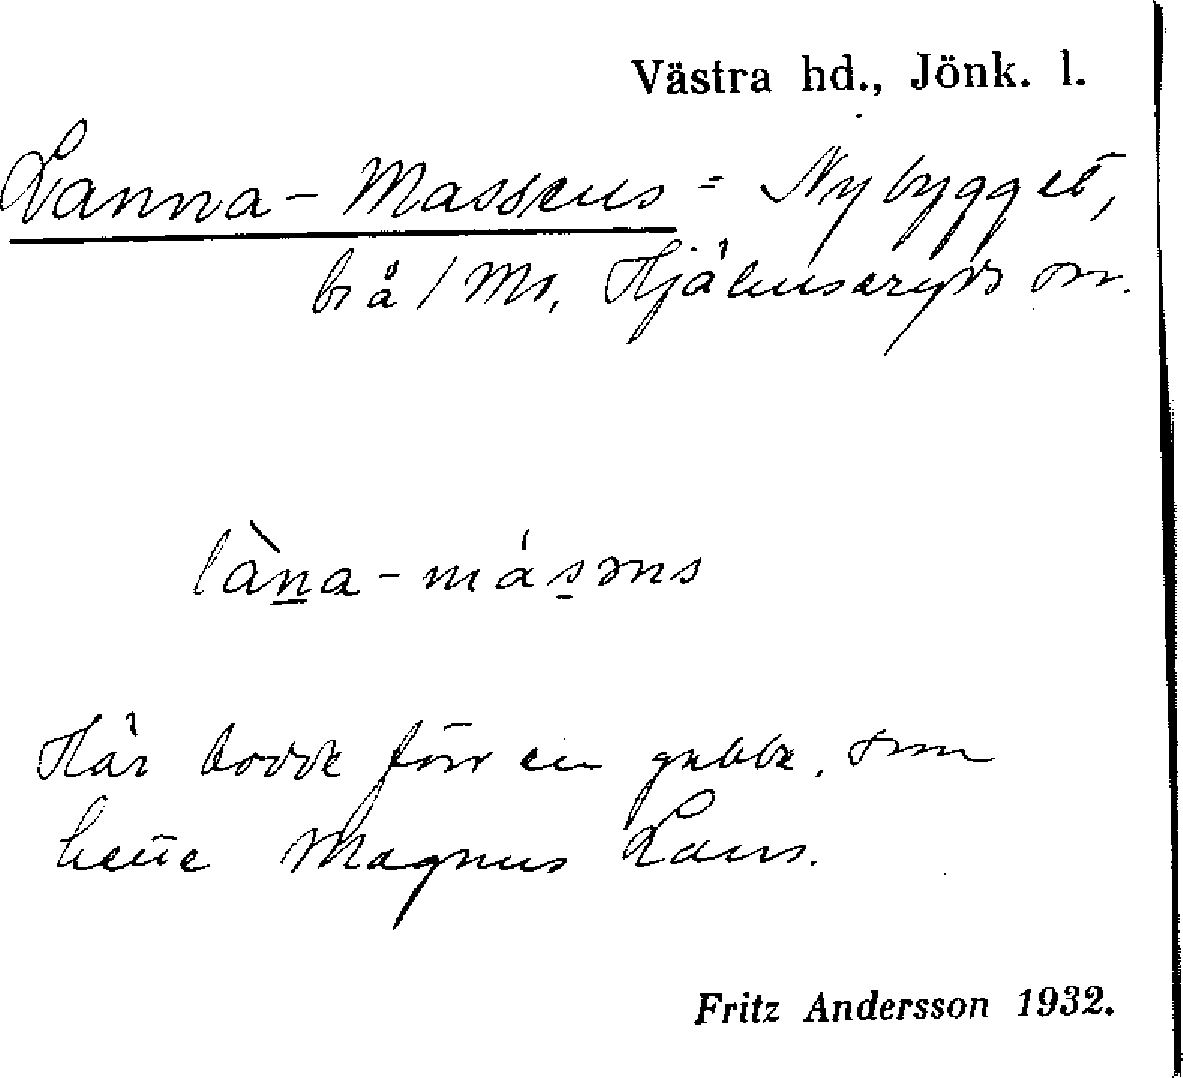 Västra hd., Jönk. l.
Lanna-Massens = Nybygget,
bs å 1 Ms, Hjälmseryds sn.
làn̲a-más̲əns
Här bodde förr en gubbe, som
hette Magnus Lans.
Fritz Andersson 1932.